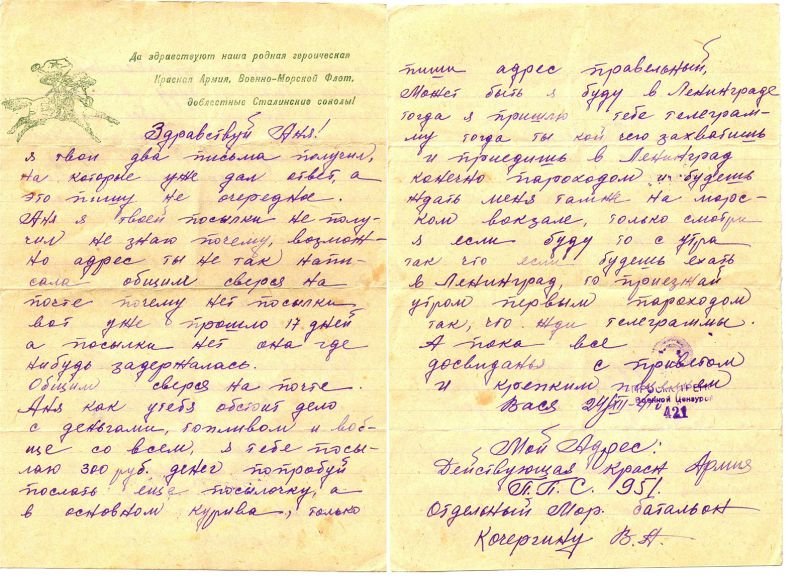 Да здравствуют наша родная героическая
Красная Армия, Военно-Морской Флот,
доблестные Сталинские соколы!
Здравствуй Аня!
я твои два письма получил,
на которые уже дал ответ, а
это пишу не очередное.
Аня я твоей посылки не полу-
чил не знаю почему, возмож-
но адрес ты не так напи-
сала общим сверся на
почте почему нет посылки
вот уже прошло 17 дней
а посылки нет она где
нибудь задержалась.
Общим сверся на почте.
Аня как утебя обстоит дело
с деньгами, топливом и воб-
ще со всем, я тебе посы-
лаю 300 руб. денег попробуй
послать еще посылочку, а
в основном курива, только
пиши адрес правельный,
Может быть я буду в Ленинграде
тогда я пришлю тебе телеграм-
му тогда ты кой чего захватишь
и приедишь в Ленинград
конечно пароходом и будешь
ждать меня там же на морс-
ком вокзале, только смотри
я если буду то с утра
так что если будешь ехать
в Ленинград, то приезжай
утром первым пароходом
так, что жди телеграммы.
А пока все
досвиданья с приветом
и крепким
Вася
Военной Цензурой
421
Мой Адрес:
Действующая Красн Армия
П.П.С. 951.
Отдельный Мор. батальон
Кочергину В.А.